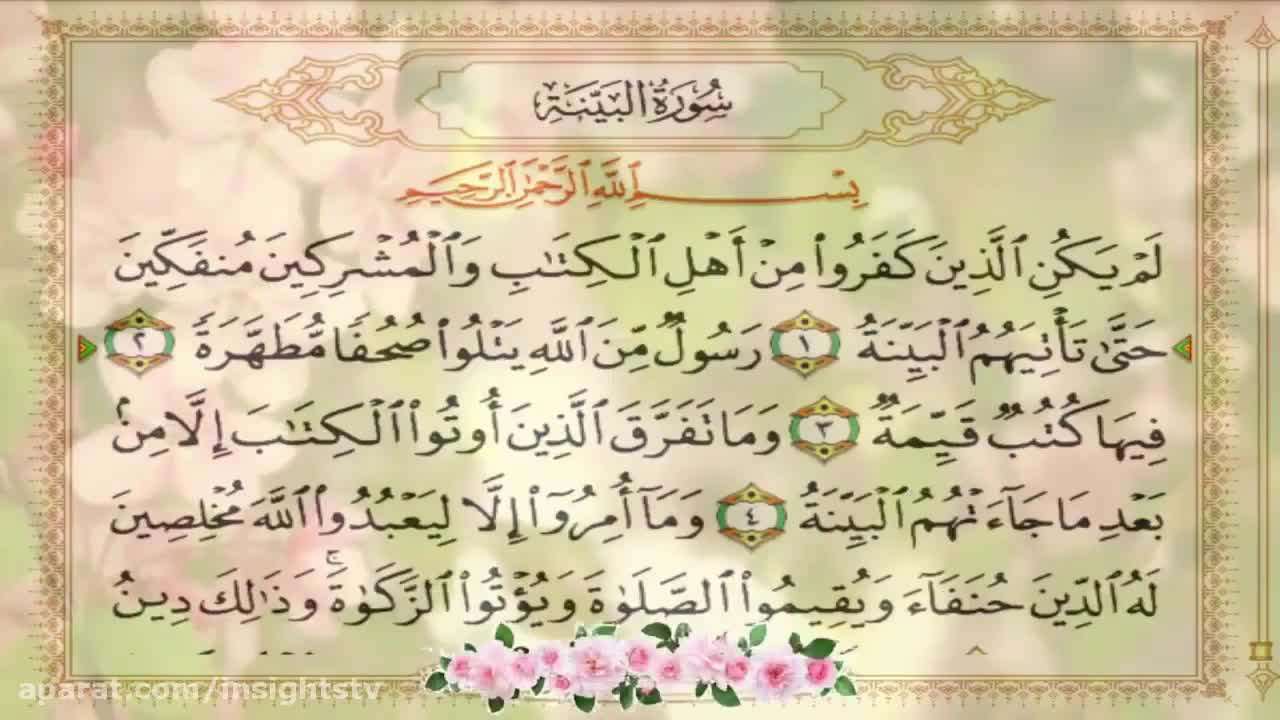 سُورَةُ البَيِّنَةِ
بِسْمِ ٱللَّهِ ٱلرَّحْمَٰنِ ٱلرَّحِيمِ
لَمْ يَكُنِ ٱلَّذِينَ كَفَرُوا۟ مِنْ أَهْلِ ٱلْكِتَٰبِ وَٱلْمُشْرِكِينَ مُنفَكِّينَ
حَتَّىٰ تَأْتِيَهُمُ ٱلْبَيِّنَةُ ١ رَسُولٌ مِّنَ ٱللَّهِ يَتْلُوا۟ صُحُفًا مُّطَهَّرَةً ٢
فِيهَا كُتُبٌ قَيِّمَةٌ ٣ وَمَا تَفَرَّقَ ٱلَّذِينَ أُوتُوا۟ ٱلْكِتَٰبَ إِلَّا مِنۢ
بَعْدِ مَا جَآءَتْهُمُ ٱلْبَيِّنَةُ ٤ وَمَآ أُمِرُوٓا۟ إِلَّا لِيَعْبُدُوا۟ ٱللَّهَ مُخْلِصِينَ
لَهُ ٱلدِّينَ حُنَفَآءَ وَيُقِيمُوا۟ ٱلصَّلَوٰةَ وَيُؤْتُوا۟ ٱلزَّكَوٰةَ ۚ وَذَٰلِكَ دِينُ
aparat.com/insightstv